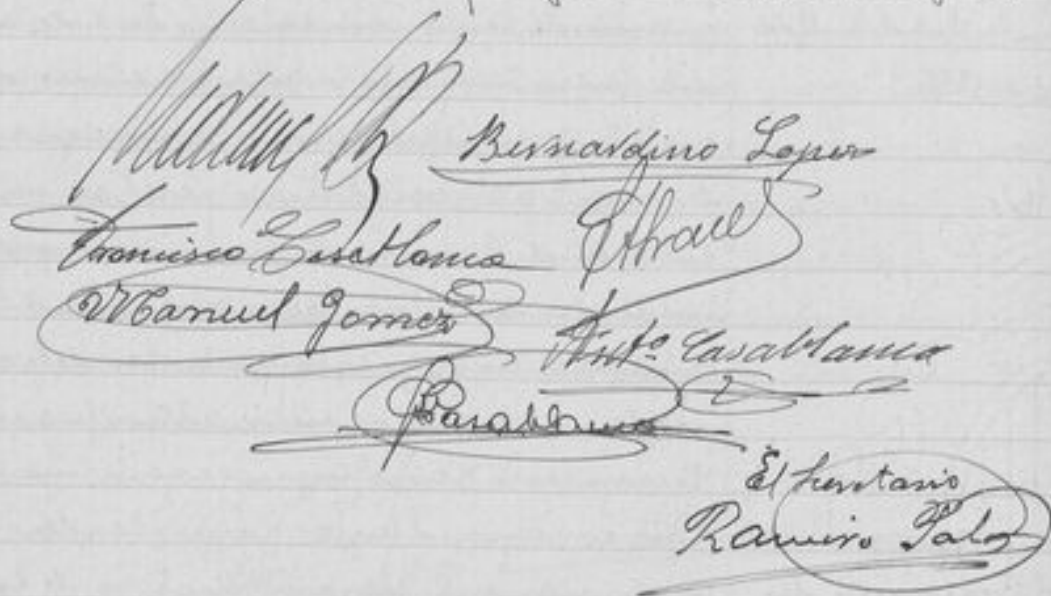 Bernardino Lopez
Francisco Casablanca
Manuel Gomez
Antº Casablanca
Casablanca
El Secretario
Ramiro